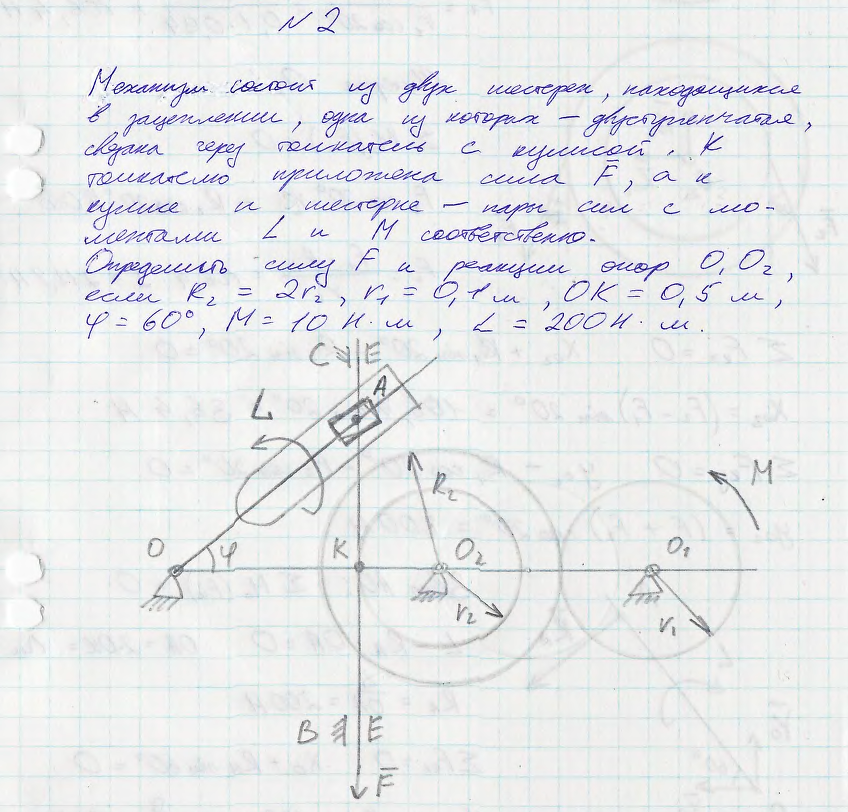 N2
Механизм состоит из двух шестерен, находящихся
в зацеплении, одна из которых – двуступенчатая,
связана через толкатель с кулисой. К
толкателю приложена сила F̅, а к
кулисе и шестерне – пары сил с мо-
ментами L и M соответственно.
Определить силу F и реакции опор O, O₂,
если R₂ = 2r₂, r₁ = 0,1 м, OK = 0,5 м,
φ = 60°, M = 10 Н·м, L = 200 Н·м.
C E
A
L
R₂
M
O φ K O₂ O₁
r₂ r₁
B E
F̅